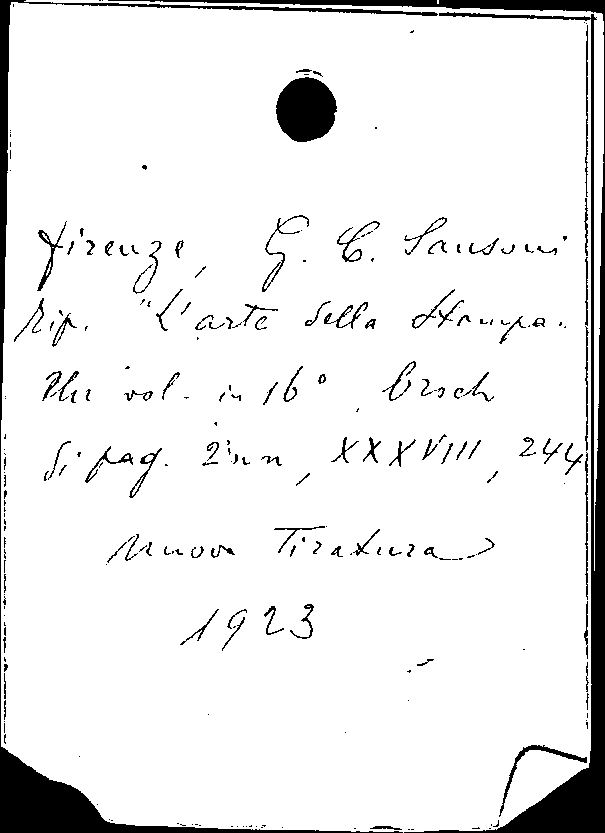 Firenze, G. C. Sansoni
Tip. "L'arte della Stampa.
Un vol. in 16° broch
di pag. 2nn, XXXVIII, 244
Nuova Tiratura
1923